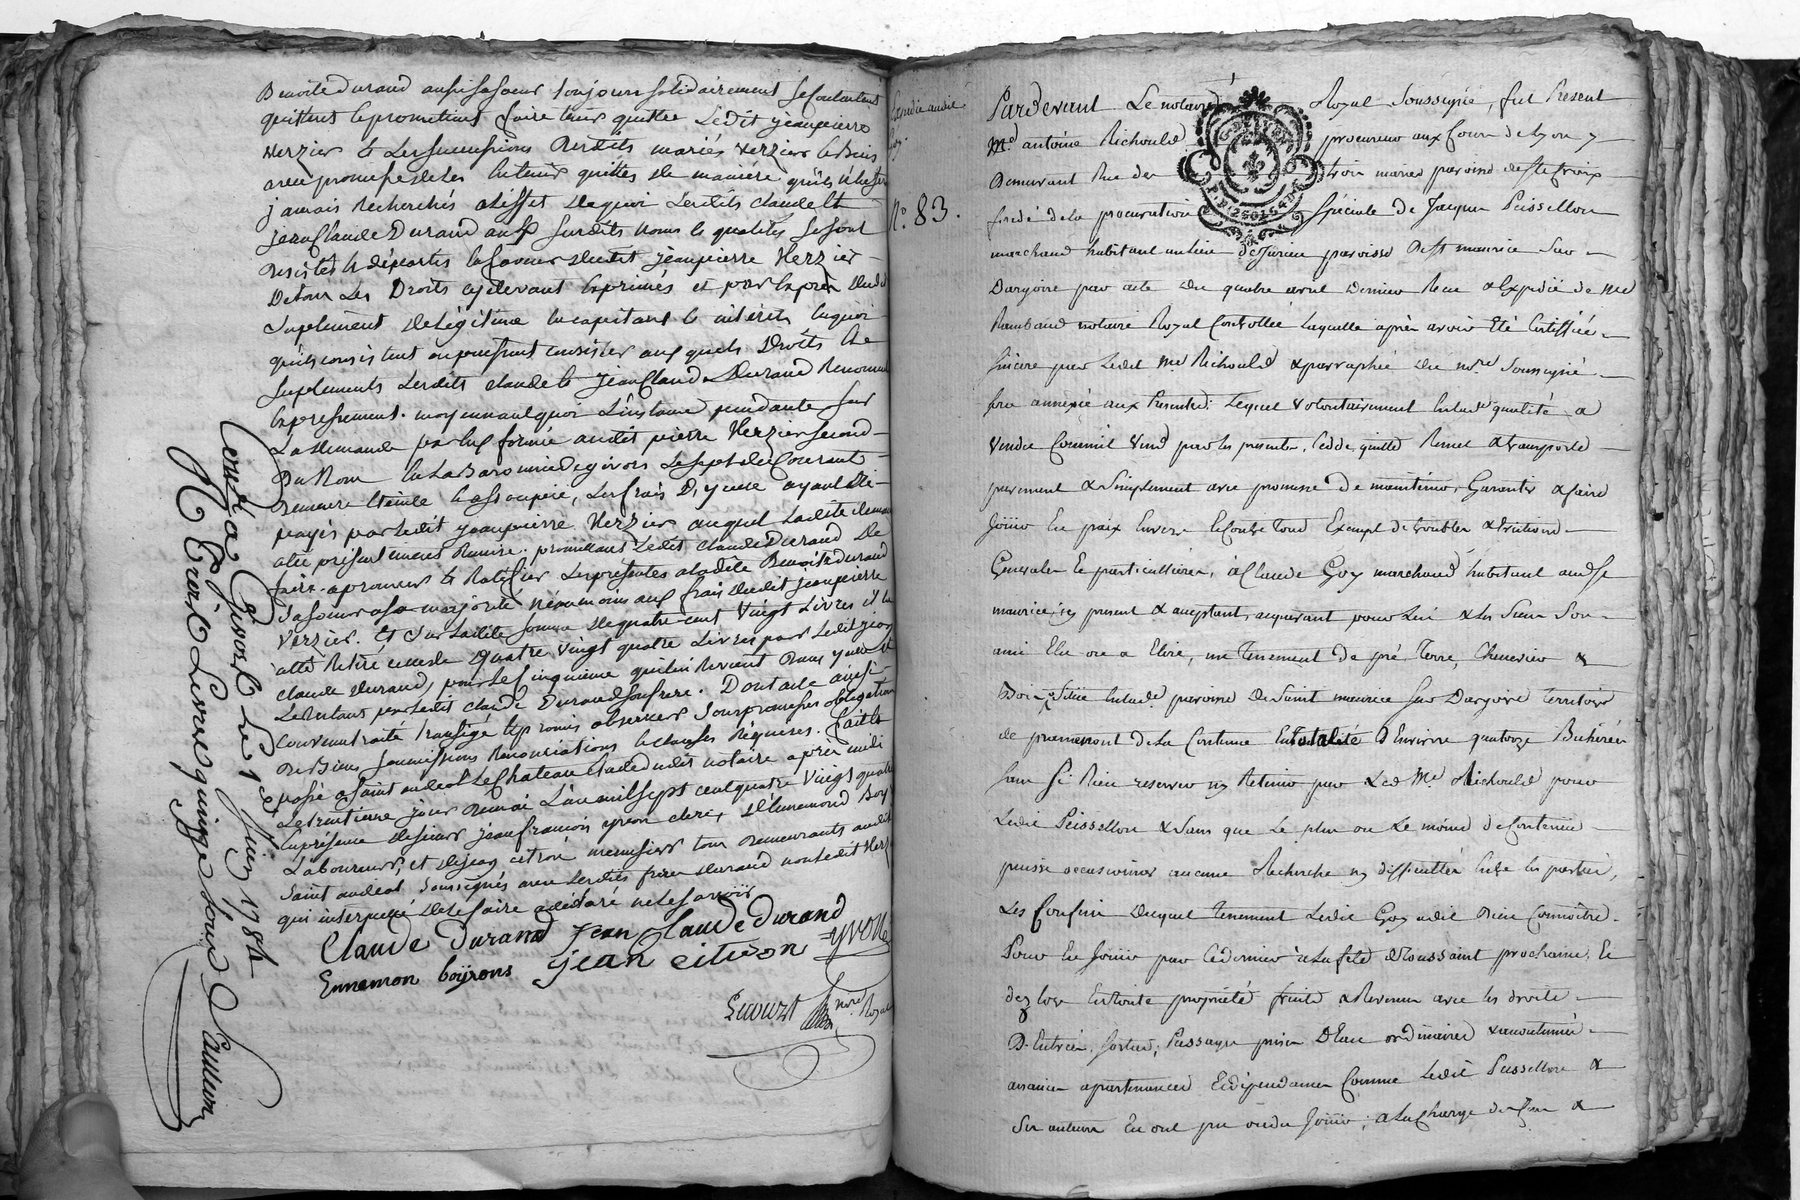 Benoite Durand aussi sa soeur toujours solidairement se contentent
quittent & promettent faire tenir quitte Ledit jeanpierre
Verzier & Les successions desdits mariés verzier & Buis
avec promesse de les en tenir quittes de manière qu'ils n'en soient
jamais Recherchés a l'effet de quoi Lesdits claude &
jean Claude Durand aux susdits noms & qualités se sont
desistés & départis en faveur dudit jeanpierre Verzier
De tous Les Droits cydevant Exprimés et par Exprès dudit
suplement de légitime en capital & interets en quoi
qu'ils consistent ou puissent consister aux quels Droits &
suplements Lesdits claude & jean Claude Durand Renoncent
Expressement. moyennant quoi L'instance pendante sur
La demande par eux formée audit pierre Verzier second
Du Nom en La Baronnie de givors Le sept du Courant
demeure éteinte & assoupie, Les frais D'ycelle ayant été
payés par Ledit jeanpierre Verzier auquel Ladite demande
a été présentement Remise. promettant Ledit claude Durand De
faire aprouver & Ratifier Les présentes a ladite Benoite Durand
sa soeur a sa majorité néanmoins aux frais dudit jeanpierre
Verzier. Et sur Ladite somme de quatre cent vingt Livres il en
a été Retiré celle de quatre vingt quatre Livres par Ledit jean
claude durand, pour Le cinquième qui lui Revient dans ycelle
Le Restant par Ledit claude Durand son frere. Dont acte ainsi
convenu traité transigé & promis observer sous promesses obligation
de Biens soumissions Renonciations & clauses Réquises. fait &
passé a saint andeol Le Chateau Etude dudit notaire après midi
Le trentieme jour de mai L'an mil sept cent quatre vingt quatre
En présence de sieur jean francois yvon clerc, d'Ennemond Boy
Laboureur, et de jean citron menuisier tous demeurants audit
saint andeol soussignés avec Lesdits freres durand non Ledit Verz
qui interpellé de le faire a déclaré ne le savoir
Claude Durand jean Claude durand
Ennemon boyrons jean citron yvon
Lecourt nore. Royal
Cont. a Givors Le 1er Juin 1784
R. Treize Livres quinze sous
N.º 83.
Pardevant Le notaire Royal Soussigné, fut Present
Me. antoine Richould procureur aux Cours de Lyon y
Demeurant Rue des trois maries paroisse de Ste Croix
fondé de la procuration Spéciale de Jacques Peissellon
marchand habitant au lieu de Jurieu paroisse De St maurice Sur
Dargoire par acte du quatre avril Dernier Recu & Expedié de Me
Rambaud notaire Royal Controllée Laquelle après avoir Été Certiffiée
sincere par Ledit Me Richould & parraphée du nre. Soussigné
sera annexée aux Presentes. Lequel volontairement En lad. qualité a
vendu Comme il vend par les presentes, Cedde, quitte Remet & transporte
purement & simplement avec promesse de maintenir, Garantir & faire
Jouir En paix Envers & Contre tous Exempt de troubles & Evictions
Generales & particullieres, à Claude Goy marchand habitant aud. St
maurice, icy present & acceptant, acquerant pour Lui & les siens son
ami Elu ou a Elire, un Tenement De pré, Terre, Cheneviere &
Bois, Situé En lad. paroisse De Saint maurice sur Dargoire Territoire
de de La Contenue En totalité D'Environ quatorze Bicherées
sans s'y Rien reserver ny Retenir par Led. Me. Richould pour
Ledit Peissellon & Sans que Le plus ou Le moins de Contenue
puisse occasionner aucune Recherche ny difficultés Entre les parties,
Les Confins Duquel Tenement Ledit Goy a dit Bien Connoitre.
Pour En Jouir par Ce dernier à La fête De Toussaint prochaine, &
des lors En toute propriété fruits & Revenus avec les droits
D'Entrées, sorties, Passages prises D'Eau ordinaires & accoutumés
aisances apartenances & dépendances Comme Ledit Peissellon &
Ses auteurs En ont pu ou du Jouir, a La Charge du Cens &